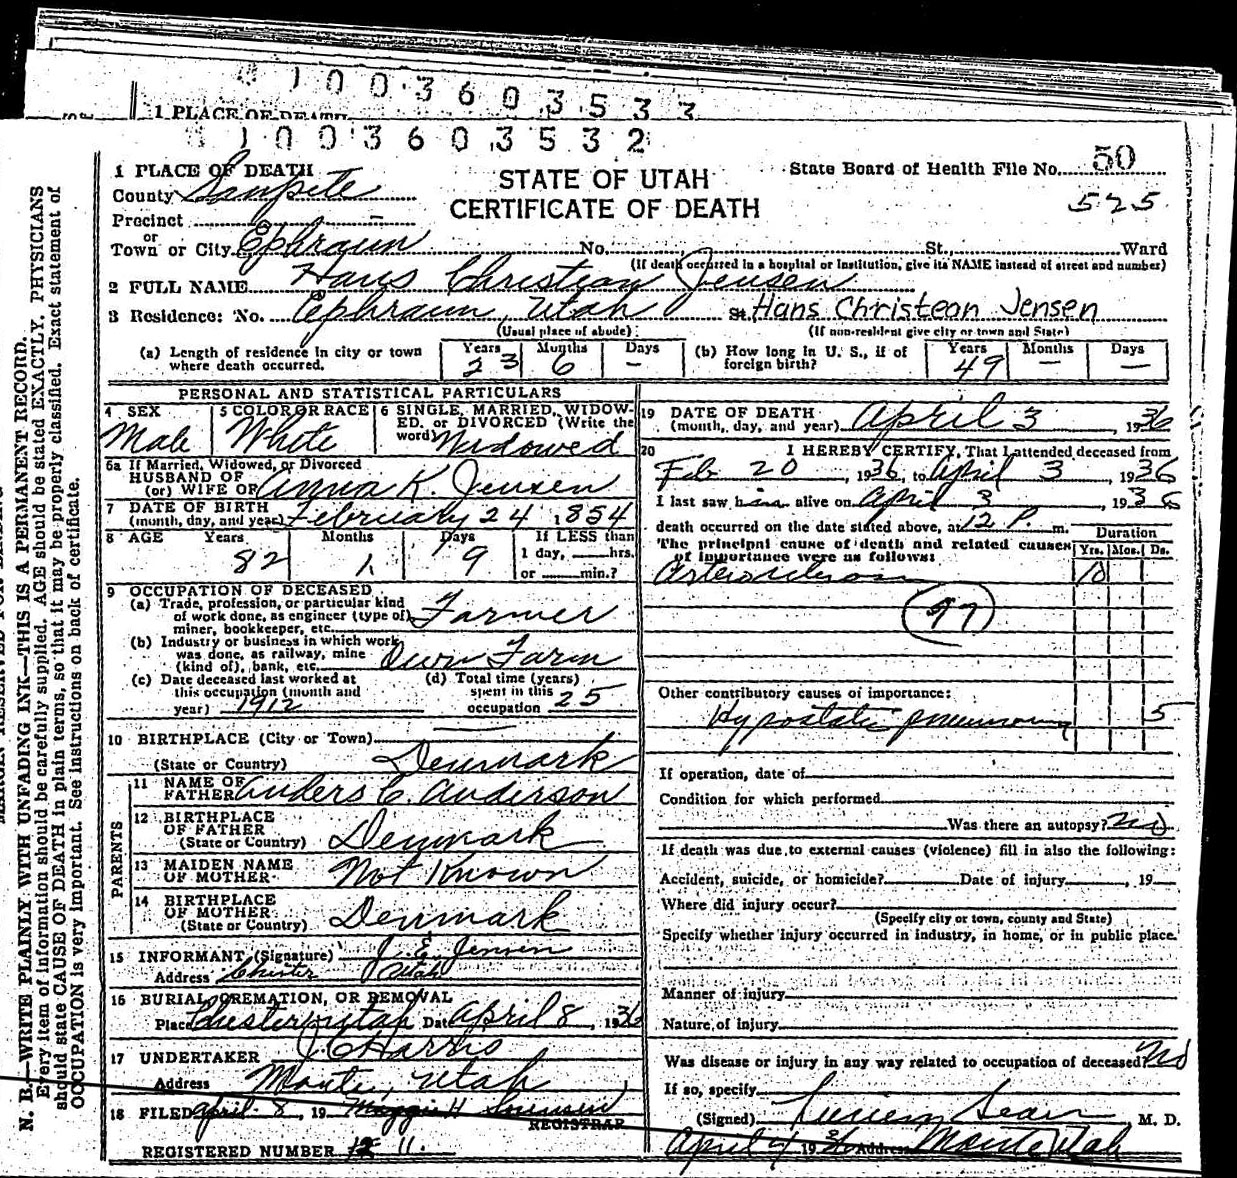 1003603533
1 PLACE OF DEATH
1003603532
1 PLACE OF DEATH
STATE OF UTAH
CERTIFICATE OF DEATH
State Board of Health File No. 50
525
County Sanpete
Precinct -
or
Town or City Ephraim No. St. Ward
(If death occurred in a hospital or institution, give its NAME instead of street and number)
2 FULL NAME Hans Christian Jensen
3 Residence: No. Ephraim, Utah St. Hans Christean Jensen
(Usual place of abode) (If non-resident give city or town and State)
(a) Length of residence in city or town where death occurred. Years 23 Months 6 Days -
(b) How long in U. S., if of foreign birth? Years 49 Months - Days -
PERSONAL AND STATISTICAL PARTICULARS
4 SEX Male
5 COLOR OR RACE White
6 SINGLE, MARRIED, WIDOWED, or DIVORCED (Write the word) Widowed
6a If Married, Widowed, or Divorced
HUSBAND OF
(or) WIFE OF Anna K. Jensen
7 DATE OF BIRTH
(month, day, and year) February 24 1854
8 AGE Years 82 Months 1 Days 9 If LESS than
1 day, hrs.
or min.?
9 OCCUPATION OF DECEASED
(a) Trade, profession, or particular kind of work done, as engineer (type of) miner, bookkeeper, etc. Farmer
(b) Industry or business in which work was done, as railway, mine (kind of), bank, etc. Own Farm
(c) Date deceased last worked at this occupation (month and year) 1912
(d) Total time (years) spent in this occupation 25
10 BIRTHPLACE (City or Town)
(State or Country) Denmark
PARENTS
11 NAME OF FATHER Anders C. Anderson
12 BIRTHPLACE OF FATHER
(State or Country) Denmark
13 MAIDEN NAME OF MOTHER Not Known
14 BIRTHPLACE OF MOTHER
(State or Country) Denmark
15 INFORMANT (Signature) J. E. Jensen
Address Chester Utah
16 BURIAL, CREMATION, OR REMOVAL
Place Chester, Utah Date April 8, 1936
17 UNDERTAKER J. C. Harris
Address Manti, Utah
18 FILED April 8, 19 Maggie H Sorensen
REGISTRAR
REGISTERED NUMBER 12 11.
19 DATE OF DEATH
(month, day, and year) April 3, 1936
20 I HEREBY CERTIFY, That I attended deceased from
Feb 20, 1936, to April 3, 1936
I last saw him alive on April 3, 1936
death occurred on the date stated above, at 12 P. m.
The principal cause of death and related causes of importance were as follows:
Duration
Yrs. Mos. Ds.
10
97
Other contributory causes of importance:
Hypostatic pneumonia 5
If operation, date of
Condition for which performed
Was there an autopsy? No
If death was due to external causes (violence) fill in also the following:
Accident, suicide, or homicide? Date of injury, 19
Where did injury occur?
(Specify city or town, county and State)
Specify whether injury occurred in industry, in home, or in public place.
Manner of injury
Nature of injury
Was disease or injury in any way related to occupation of deceased? No
If so, specify
(Signed) M. D.
April 4 1936 Address Manti Utah
N. B.—WRITE PLAINLY WITH UNFADING INK—THIS IS A PERMANENT RECORD.
Every item of information should be carefully supplied. AGE should be stated EXACTLY. PHYSICIANS
should state CAUSE OF DEATH in plain terms, so that it may be properly classified. Exact statement of
OCCUPATION is very important. See instructions on back of certificate.